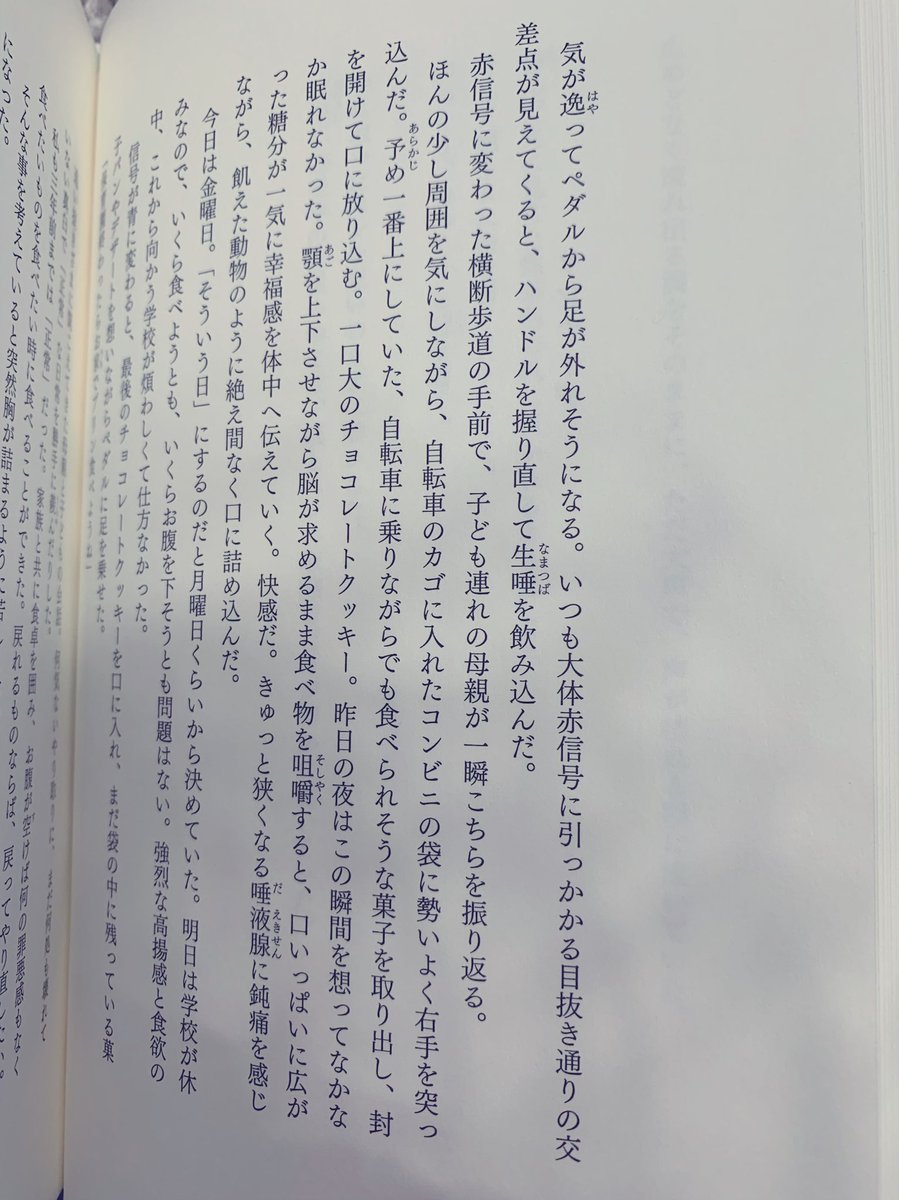 気が逸ってペダルから足が外れそうになる。いつも大体赤信号に引っかかる目抜き通りの交
差点が見えてくると、ハンドルを握り直して生唾を飲み込んだ。
赤信号に変わった横断歩道の手前で、子ども連れの母親が一瞬こちらを振り返る。
ほんの少し周囲を気にしながら、自転車のカゴに入れたコンビニの袋に勢いよく右手を突っ
込んだ。予め一番上にしていた、自転車に乗りながらでも食べられそうな菓子を取り出し、封
を開けて口に放り込む。一口大のチョコレートクッキー。昨日の夜はこの瞬間を想ってなかな
か眠れなかった。顎を上下させながら脳が求めるまま食べ物を咀嚼すると、口いっぱいに広が
った糖分が一気に幸福感を体中へ伝えていく。快感だ。きゅっと狭くなる唾液腺に鈍痛を感じ
ながら、飢えた動物のように絶え間なく口に詰め込んだ。
今日は金曜日。「そういう日」にするのだと月曜日くらいから決めていた。明日は学校が休
みなので、いくら食べようとも、いくらお腹を下そうとも問題はない。強烈な高揚感と食欲の
中、これから向かう学校が煩わしくて仕方なかった。
信号が青に変わると、最後のチョコレートクッキーを口に入れ、まだ袋の中に残っている菓
子パンやデザートを想いながらペダルに足を乗せた。
私も三年前までは「正常」だった。家族と共に食卓を囲み、お腹が空けば何の罪悪感もなく
食べたいものを食べたい時に食べることができた。戻れるものならば、戻ってやり直したい。
そんな事を考えていると突然胸が詰まるように苦し
になった。